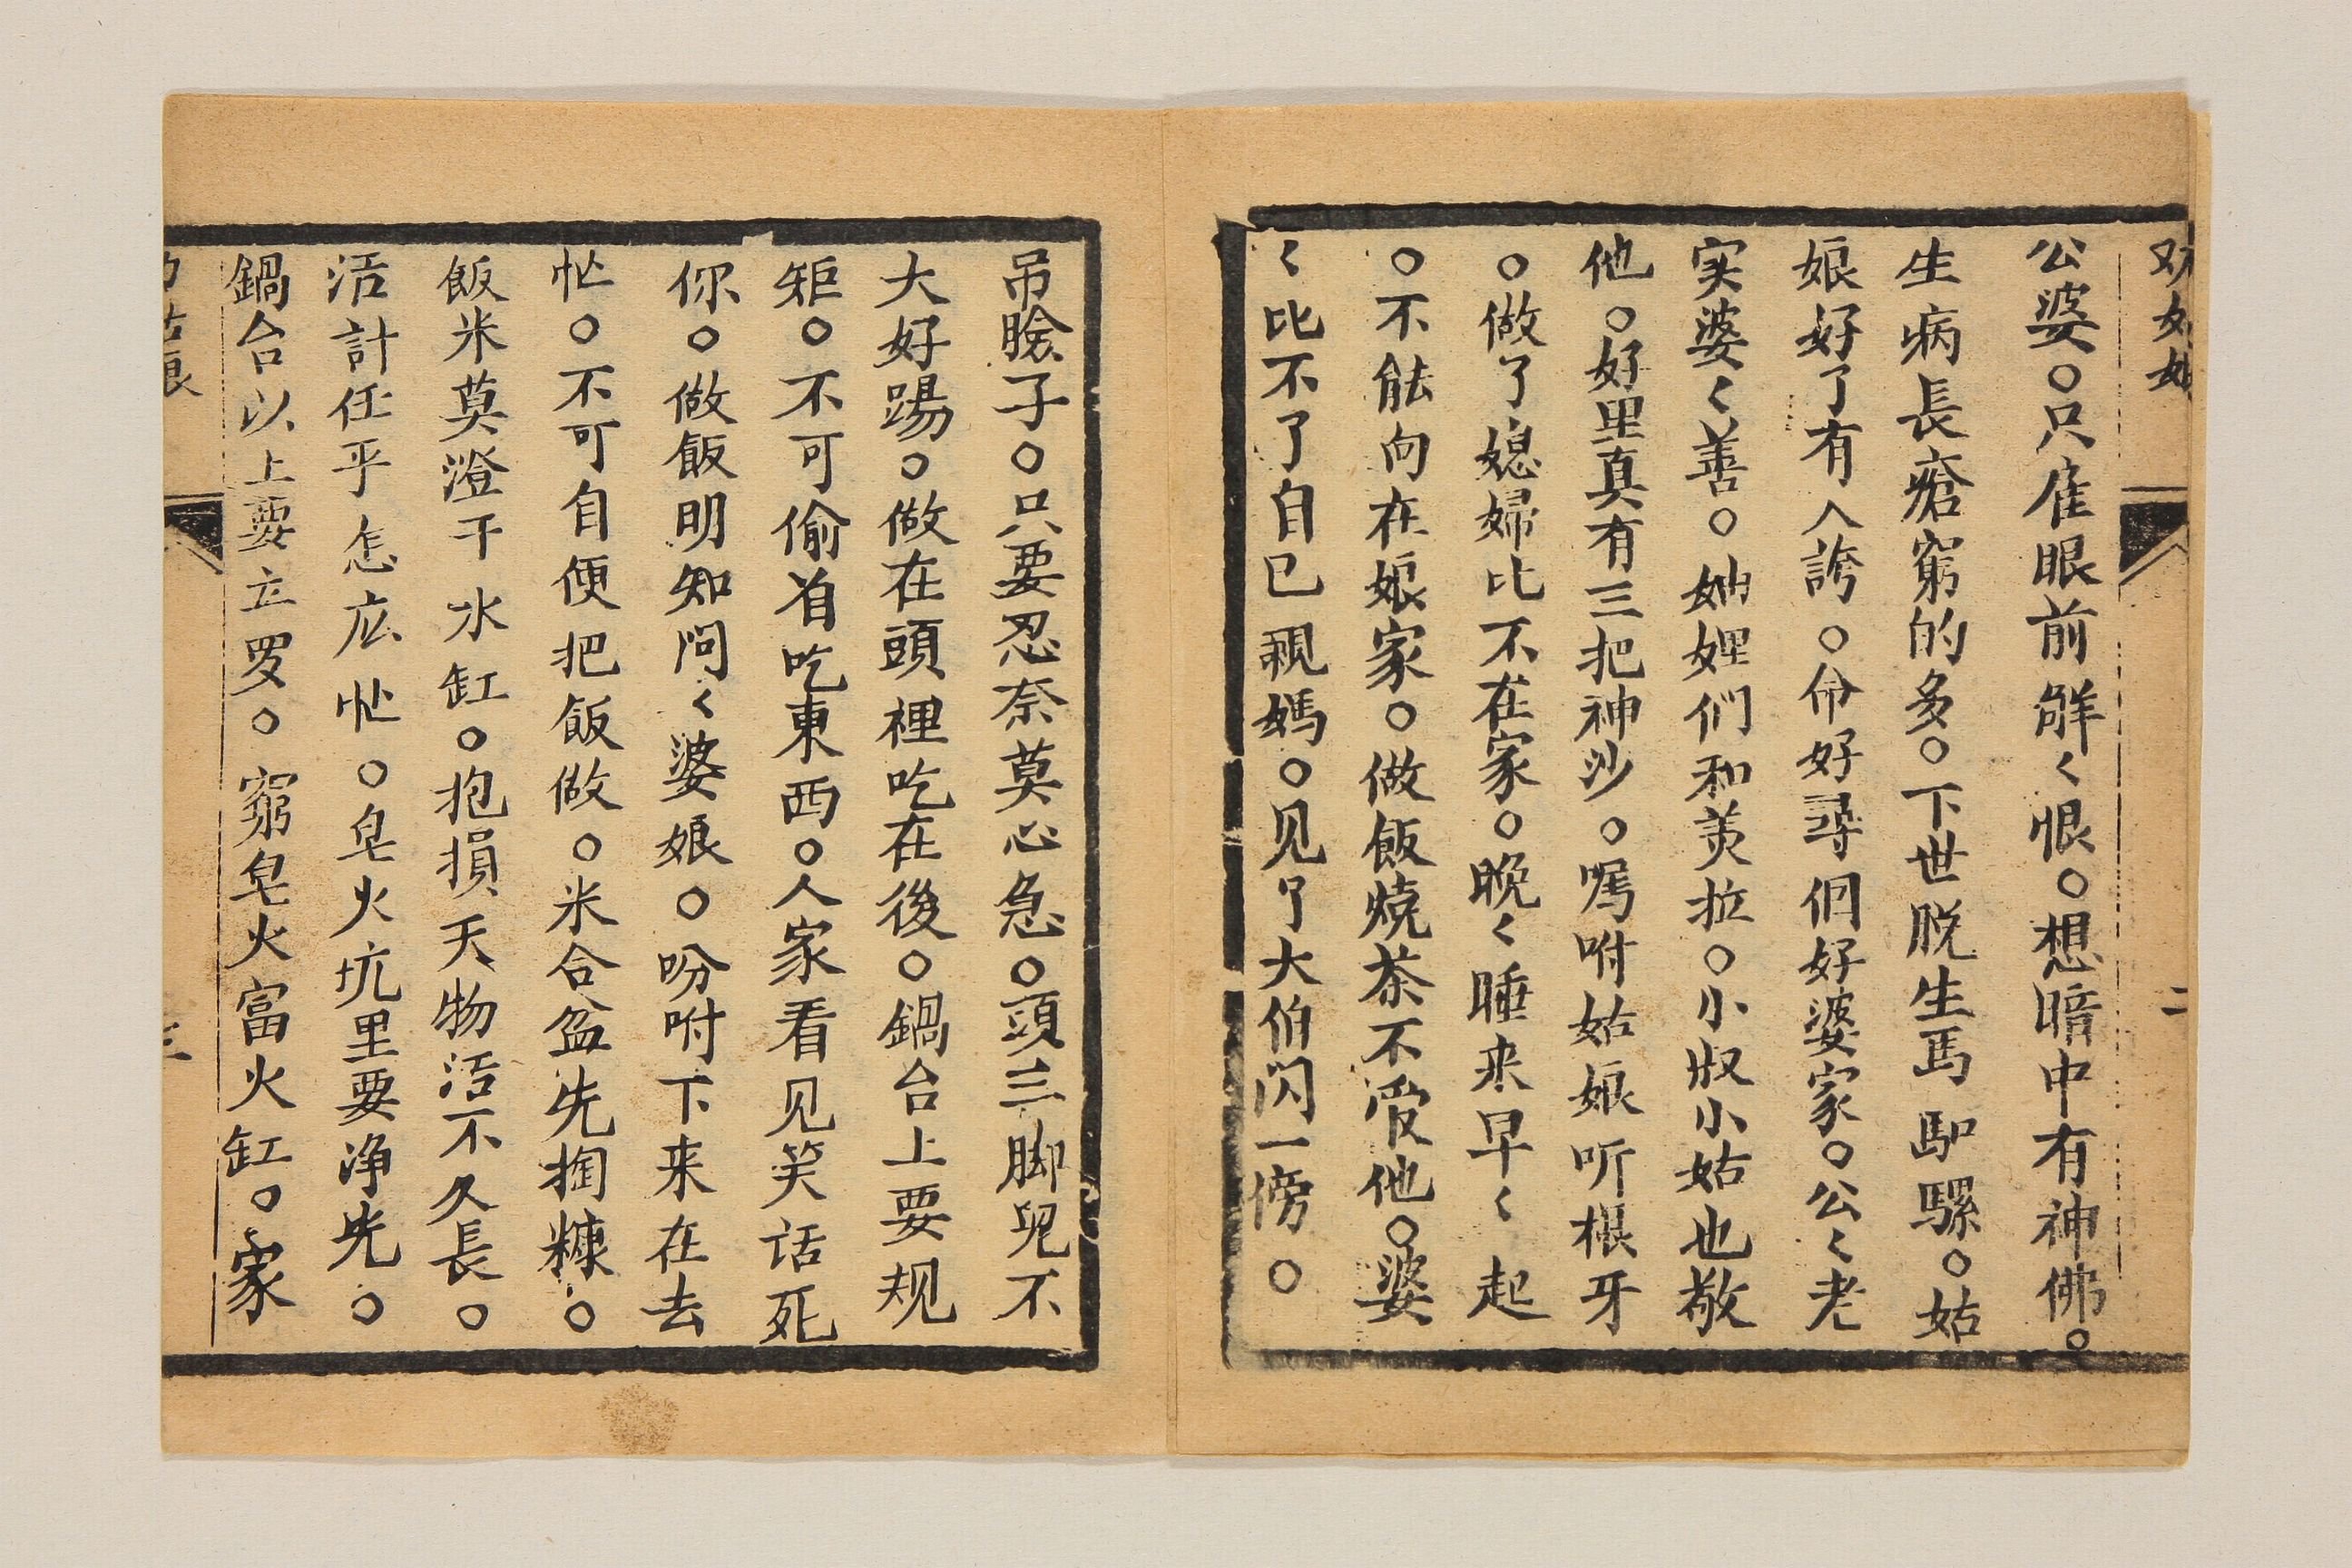 公婆。只雇眼前觧〻恨。想暗中有神佛。
生病長瘡窮的多。下世脱生馬馿騾。姑
娘好了有人誇。命好尋個好婆家。公〻老
实婆〻善。妯娌们和美拉。小叔小姑也敬
他。好里真有三把神沙。嘱咐姑娘听根牙
。做了媳婦比不在家。晚〻睡来早〻起
。不能向在娘家。做飯燒茶不爱他。婆
〻比不了自己親媽。见了大伯闪一傍。
吊臉子。只要忍奈莫心急。頭三脚兒不
大好踢。做在頭裡吃在後。鍋台上要规
矩。不可偷着吃東西。人家看见笑话死
你。做飯明知问〻婆娘。吩咐下来在去
忙。不可自便把飯做。米合盆先掏糠。
飯米莫澄干水缸。抱損天物活不久長。
活計任乎怎広忙。皂火坑里要净光。
鍋台以上要立罗。窮皂火富火缸。家
三